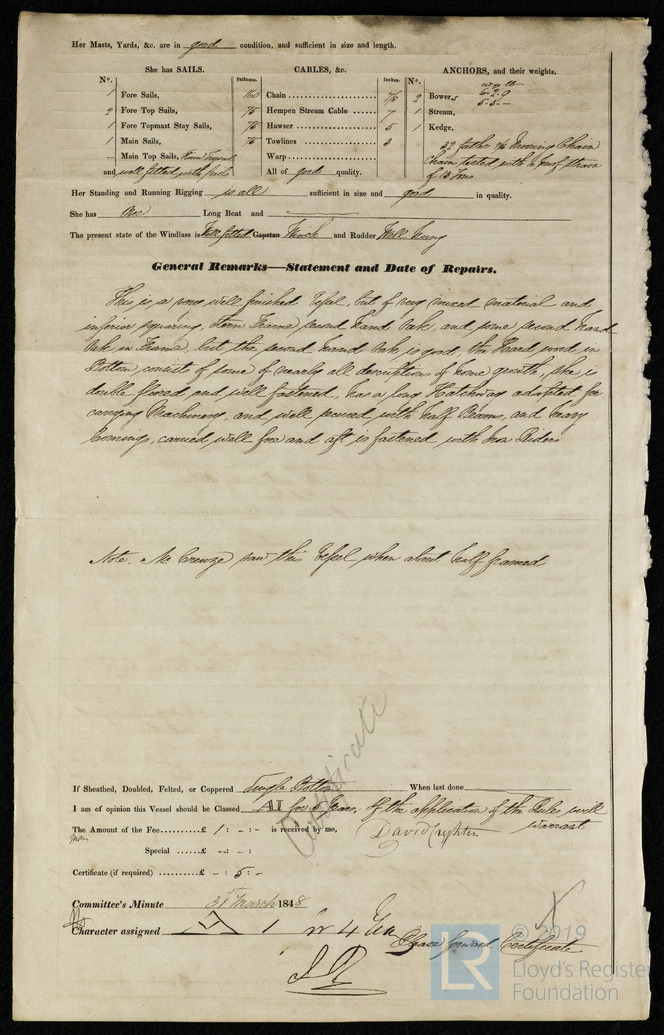 Her Masts, Yards, &c. are in good condition, and sufficient in size and length.
She has SAILS. CABLES, &c. ANCHORS, and their weights.
N°. Fathoms. Inches. N°.
1 Fore Sails, 100 Chain 7/8 2 Bowers 6-2-9
2 Fore Top Sails, 75 Hempen Stream Cable 7 1 Stream, 5-3-–
1 Fore Topmast Stay Sails, 75 Hawser 5 1 Kedge,
1 Main Sails, 75 Towlines 3 32 faths 7/8 Mooring Chain
– Main Top Sails, Warp Chain tested with a proof strain
and well fitted with sails All of good quality. of 13 Tons
Her Standing and Running Rigging is all sufficient in size and good in quality.
She has One Long Boat and
The present state of the Windlass is Well fitted Capstan Winch and Rudder Well hung
General Remarks—Statement and Date of Repairs.
This is a very well finished Vessel, but of very mixed material and
inferior squaring, Stern Frame second hand Oak, and some second hand
Oak in Frame, but the second hand Oak is good, the Hard wood in
Bottom consist of some of nearly all descriptions of home growth, she is
double floored and well fastened, has a long Hatchway adapted for
carrying Machinery, and well secured with half Beams, and heavy
Comings, carried well fore and aft is fastened with Iron Riders
Note. Mr Creuze saw this Vessel when about half framed
Certificate
If Sheathed, Doubled, Felted, or Coppered Single Bottom When last done
I am of opinion this Vessel should be Classed A1 for 5 Years, If the application of the Rules will
warrant
The Amount of the Fee..........£ 1 : – : – is received by me, David Crighton
Special ......£ – : – : –
Certificate (if required) ......£ – : 5 : –
Committee's Minute 31st March 1848
Character assigned A 1 for 4 Yrs
Certificate
© 2019
LR
Lloyd's Register
Foundation